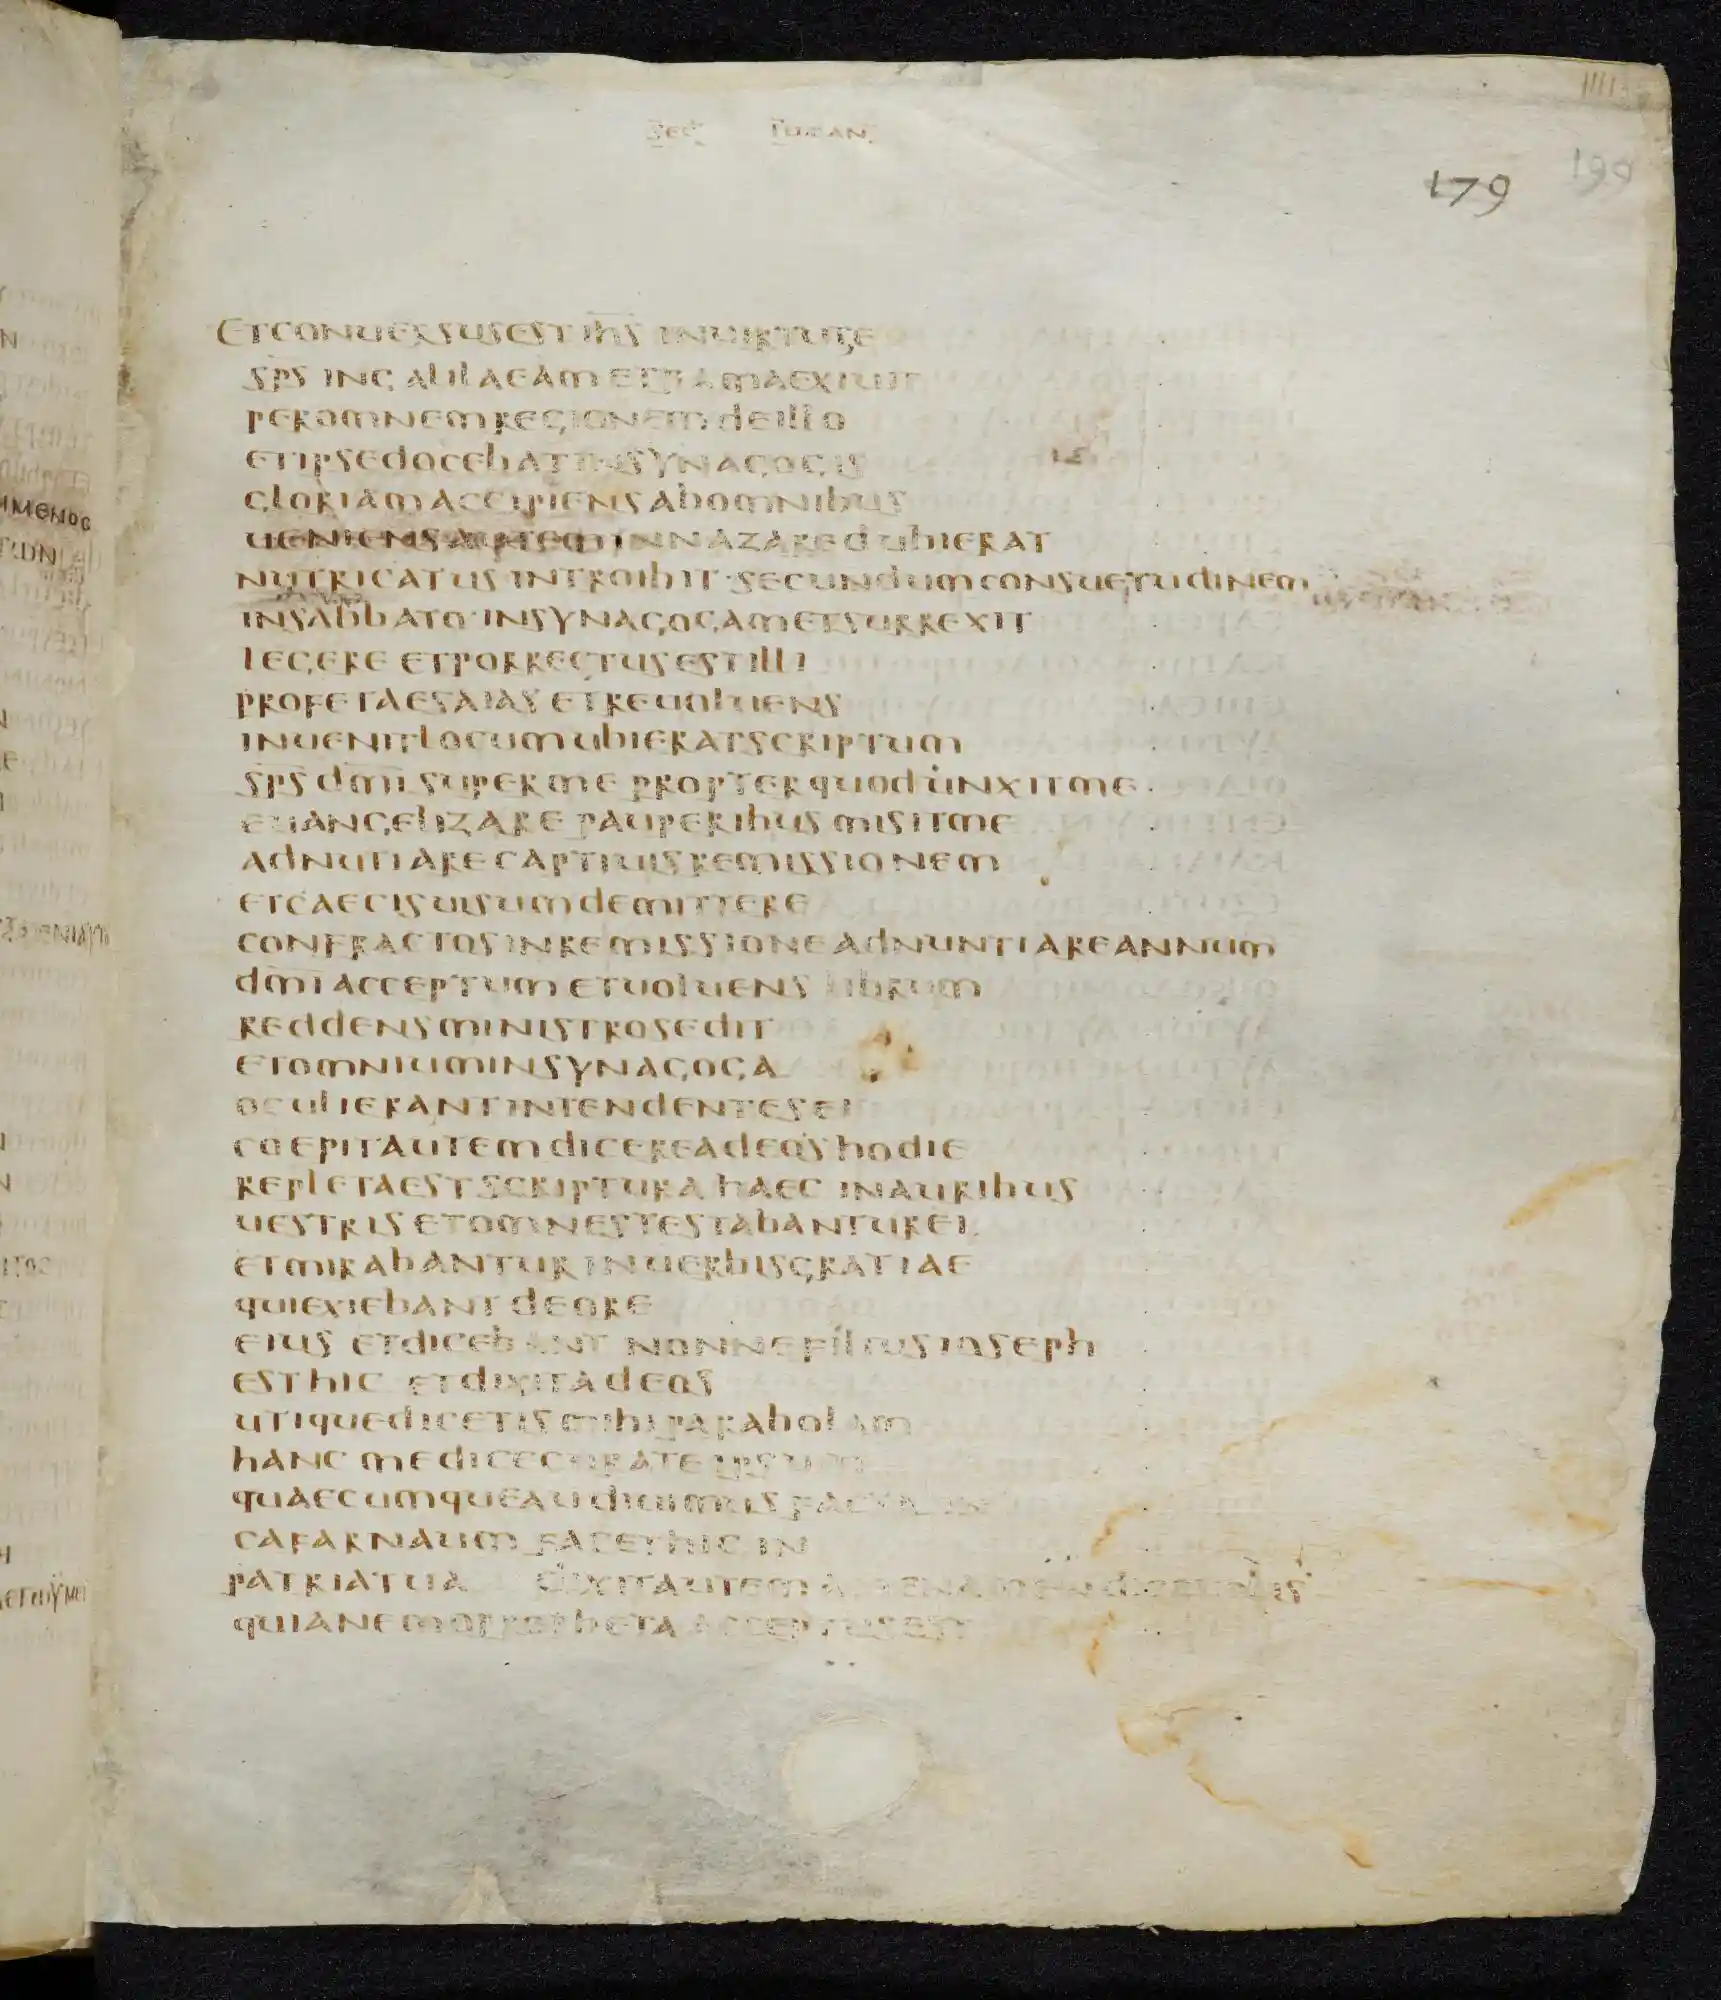 SEC LUCAN
179
190
ET CONUERSUS EST IHS IN UIRTUTE
SPS IN GALILAEAM ET FAMA EXIUIT
PER OMNEM REGIONEM DE ILLO
ET IPSE DOCEBAT IN SYNAGOGIS
GLORIAM ACCIPIENS AB OMNIBUS
UENIENS AUTEM IN NAZARED UBI ERAT
NUTRICATUS INTROIBIT SECUNDUM CONSUETUDINEM
IN SABBATO IN SYNAGOGAM ET SURREXIT
LEGERE ET PORRECTUS EST ILLI
PROFETA ESAIAS ET REUOLUENS
INUENIT LOCUM UBI ERAT SCRIPTUM
SPS DMI SUPER ME PROPTER QUOD UNXIT ME
EUANGELIZARE PAUPERIBUS MISIT ME
ADNUTIARE CAPTIUIS REMISSIONEM
ET CAECIS UISUM DEMITTERE
CONFRACTOS IN REMISSIONE ADNUNTIARE ANNUM
DMI ACCEPTUM ET UOLUENS LIBRUM
REDDENS MINISTRO SEDIT
ET OMNIUM IN SYNAGOGA
OCULI ERANT INTENDENTES EI
COEPIT AUTEM DICERE AD EOS HODIE
REPLETA EST SCRIPTURA HAEC IN AURIBUS
UESTRIS ET OMNES TESTABANTUR EI
ET MIRABANTUR IN UERBIS GRATIAE
QUI EXIEBANT DE ORE
EIUS ET DICEBANT NONNE FILIUS IOSEPH
EST HIC ET DIXIT AD EOS
UTIQUE DICETIS MIHI PARABOLAM
HANC MEDICE CURA TE IPSUM
QUAECUMQUE AUDIUIMUS FACTA IN
CAFARNAUM FAC ET HIC IN
PATRIA TUA DIXIT AUTEM AMEN AMEN DICO UOBIS
QUIA NEMO PROPHETA ACCEPTUS EST